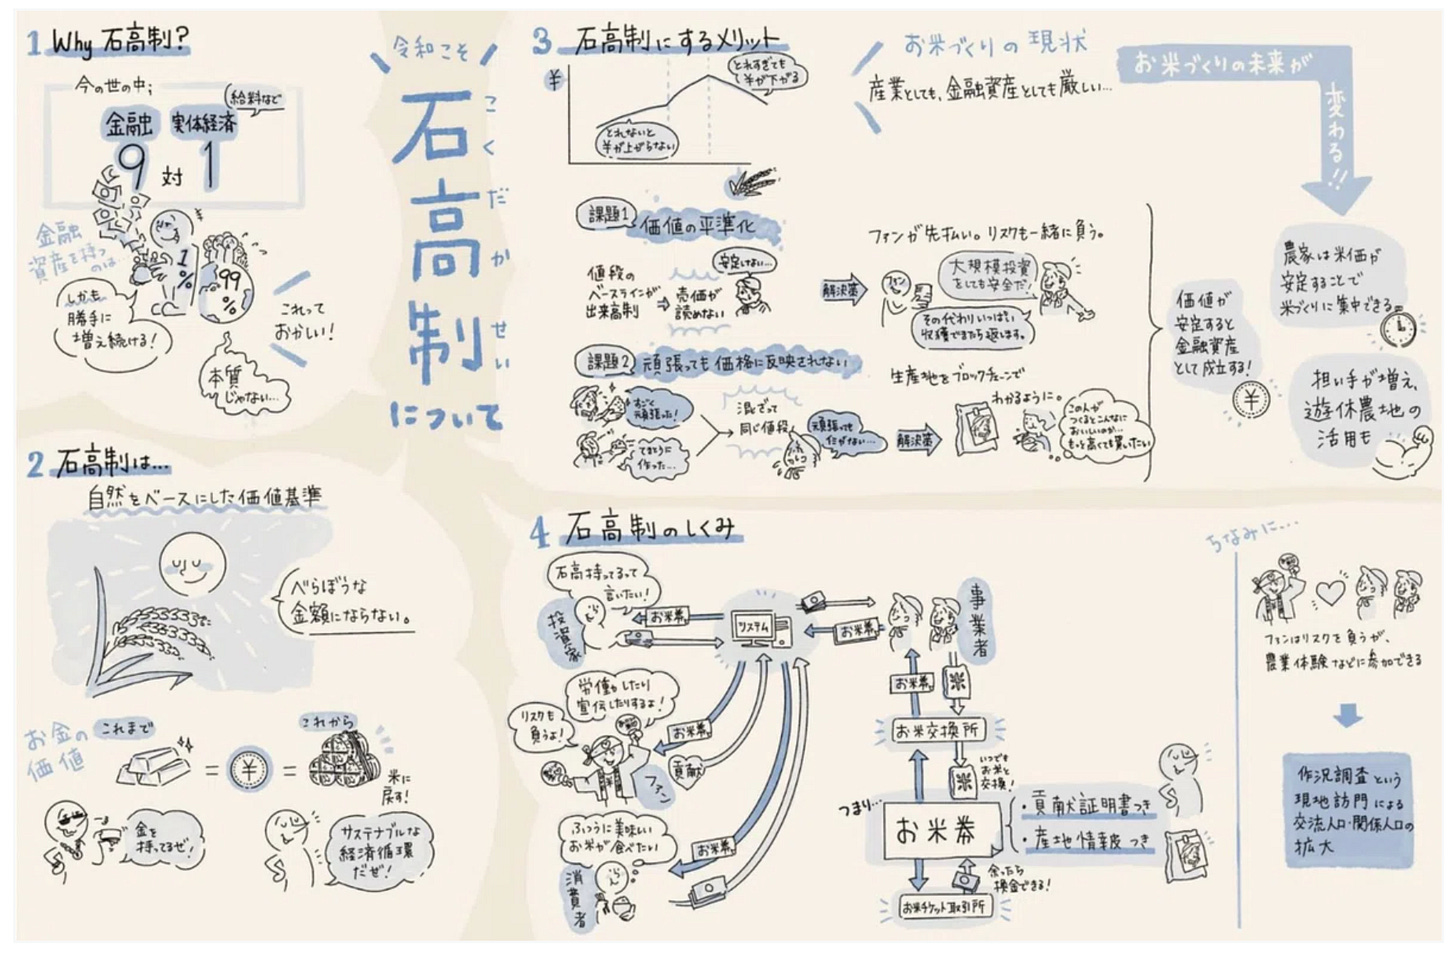 令和こそ
石高制
こくだかせい
について
1 Why 石高制?
今の世の中;
給料など
金融
実体経済
9 対 1
金融
資産を持つ
のは…
1%
99%
しかも
勝手に
増え続ける!
これって
おかしい!
本質
じゃない…
2 石高制は…
自然をベースにした価値基準
べらぼうな
金額にならない。
お金の
価値
これまで
これから
= ¥ =
米に
戻す!
金を
持ってるぜ!
サステナブルな
経済循環
だぜ!
3 石高制にするメリット
¥
とれすぎても
¥が下がる
とれないと
¥が上がらない
お米づくりの現状
産業としても、金融資産としても厳しい…
お米づくりの未来が
変わる!!
課題1
価値の平準化
値段の
ベースラインが
出来高制
売価が
読めない
安定しない…
解決策
ファンが先払い。リスクも一緒に負う。
大規模投資
をしても安全だ!
その代わりいっぱい
収穫できたら返します。
課題2
頑張っても価格に反映されない
すごく
頑張った!
てきとうに
作った…
混ざって
同じ値段
頑張っても
仕方ない…
解決策
生産地をブロックチェーンで
わかるように。
この人が
つくるとこんなに
おいしいのか…
もっと高くても買いたい
価値が
安定すると
金融資産
として成立する!
¥
農家は米価が
安定することで
米づくりに集中できる
担い手が増え、
遊休農地の
活用も
4 石高制のしくみ
石高持ってるって
言いたい!
投資家
お米券
システム
お米券
事業者
労働したり
宣伝したりするよ!
リスクも
負うよ!
ファン
お米券
貢献
ふつうに美味しい
お米が食べたい
消費者
お米券
お米券
米
お米交換所
米
いつでも
お米と
交換!
つまり…
お米券
・貢献証明書つき
・産地情報つき
余ったら
換金できる!
お米チケット取引所
ちなみに…
ファンはリスクを負うが、
農業体験などに参加できる
作況調査という
現地訪問による
交流人口・関係人口の
拡大